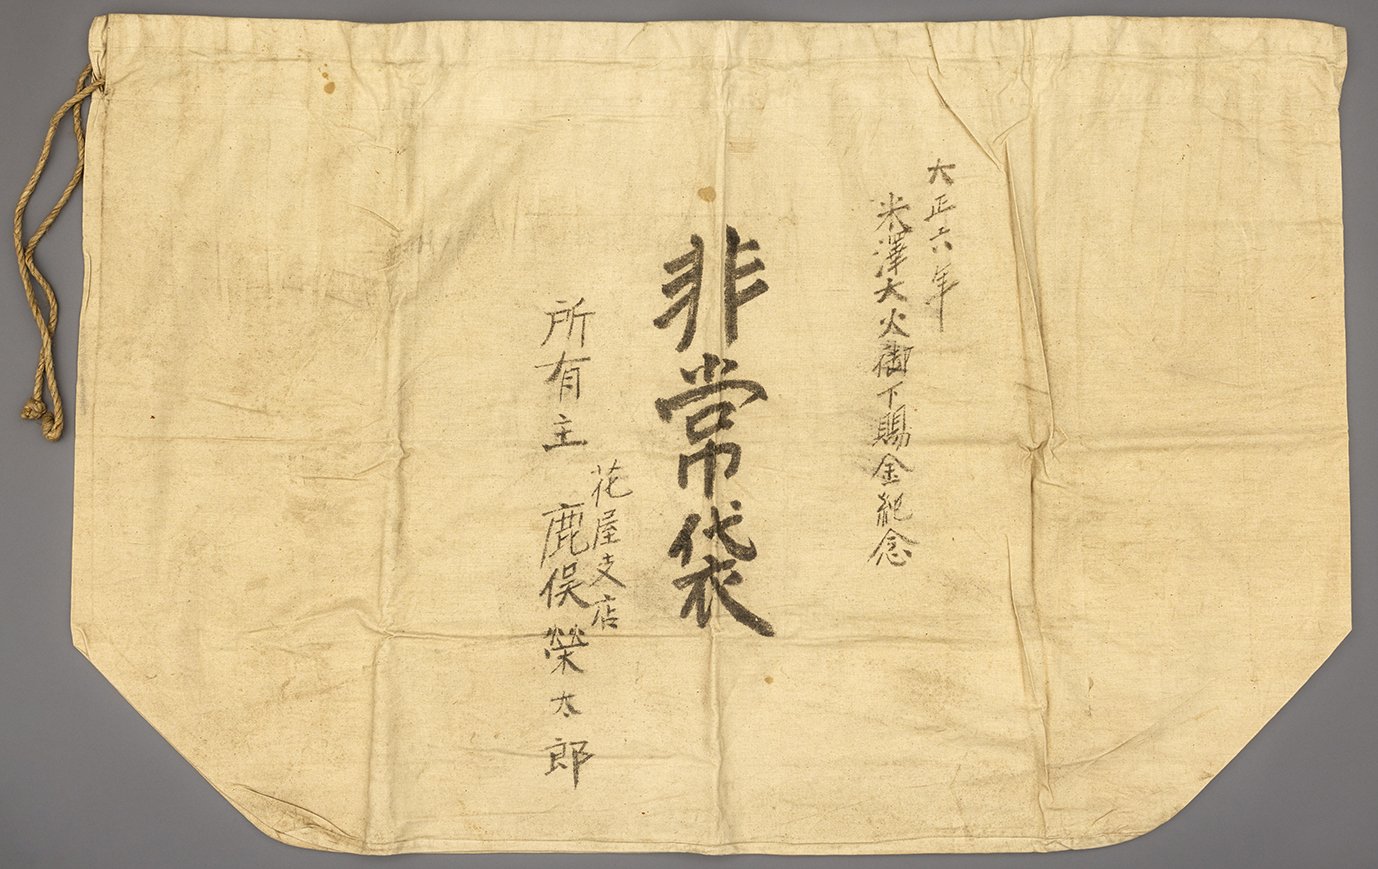 大正六年
米澤大火御下賜金紀念
非常袋
花屋支店
所有主 鹿俣榮太郎